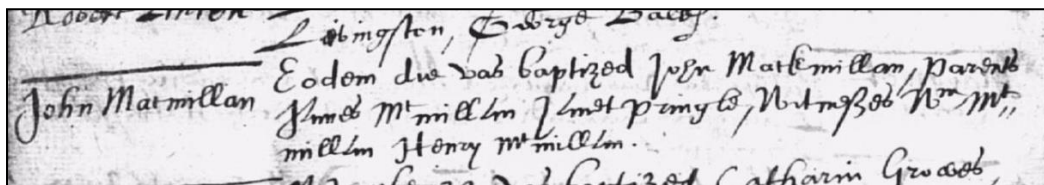 Robert Linton
Livingston, George Balch.
John Macmillan
Eodem die vas baptized John Mackmillan, Parents
James Mc millan Jennet Pringle, Witnesses Wm Mc,,
millan Henry Mc millan.
vas baptized Catharin Groves,